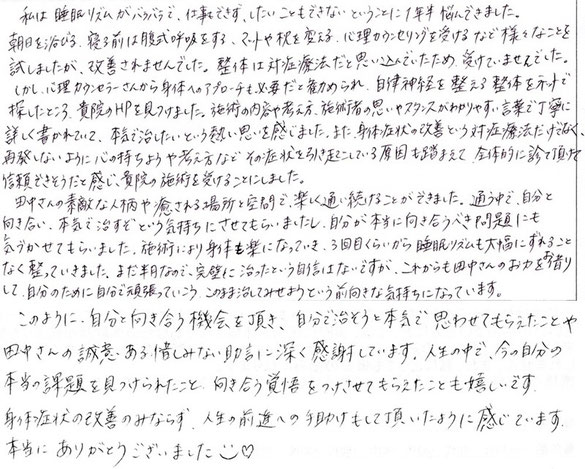 私は睡眠リズムがバラバラで、仕事できず、したいこともできないということに1年半悩んできました。
朝日を浴びる、寝る前は腹式呼吸をする、マットや枕を変える、心理カウンセリングを受けるなど様々なことを
試しましたが、改善されませんでした。整体は対症療法だと思い込んでいたため、受けていませんでした。
しかし、心理カウンセラーさんから身体へのアプローチも必要だと勧められ、自律神経を整える整体をネットで
探したところ、貴院のHPを見つけました。施術の内容や考え方、施術者の思いやスタンスがわかりやすい言葉で丁寧に
詳しく書かれていて、本気で治したいという熱い思いを感じました。また、身体症状の改善という対症療法だけでなく、
再発しないように心の持ちようや考え方など その症状を引き起こしている原因も踏まえて 全体的に診て頂けて
信頼できそうだと感じ、貴院の施術を受けることにしました。
田中さんの素敵な人柄や癒される場所と空間で、楽しく通い続けることができました。通う中で、自分と
向き合い、本気で治すぞという気持ちにさせてもらいましたし、自分が本当に向き合うべき問題にも
気づかせてもらいました。施術により身体も楽になっていき、3回目くらいから睡眠リズムも大幅にずれること
なく整っていきました。まだ半月なので、完璧に治ったという自信はないですが、これからも田中さんのお力を借り
して、自分のために自分で頑張っていこう、このまま治してみせようという前向きな気持ちになっています。
このように、自分と向き合う機会を頂き、自分で治そうと本気で思わせてもらえたことや
田中さんの誠意ある惜しみない助言に深く感謝しています。人生の中で、今の自分の
本当の課題を見つけられたこと、向き合う覚悟をつけさせてもらえたことも嬉しいです。
身体症状の改善のみならず、人生の前進への手助けもして頂いたように感じています。
本当に ありがとうございました☺♡